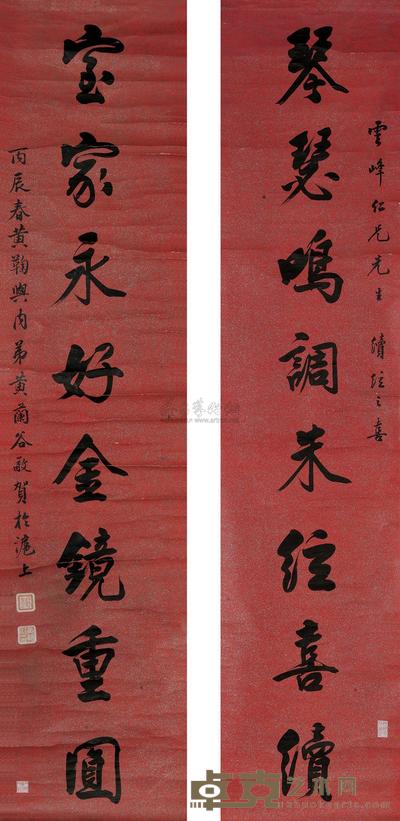 雲峰仁兄先生 續弦之喜
琴瑟鳴調朱弦喜續
室家永好金鏡重圓
丙辰春黄鞠與内弟黄蘭谷敬賀於滬上
卓克艺术网